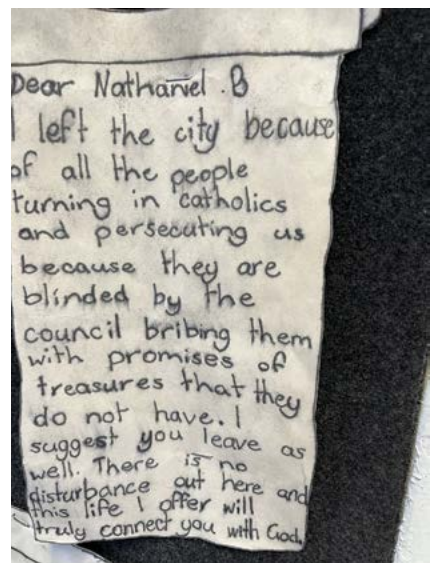 Dear Nathaniel . B
I left the city because
of all the people
turning in catholics
and persecuting us
because they are
blinded by the
council bribing them
with promises of
treasures that they
do not have. I
suggest you leave as
well. There is no
disturbance out here and
this life I offer will
truly connect you with God.